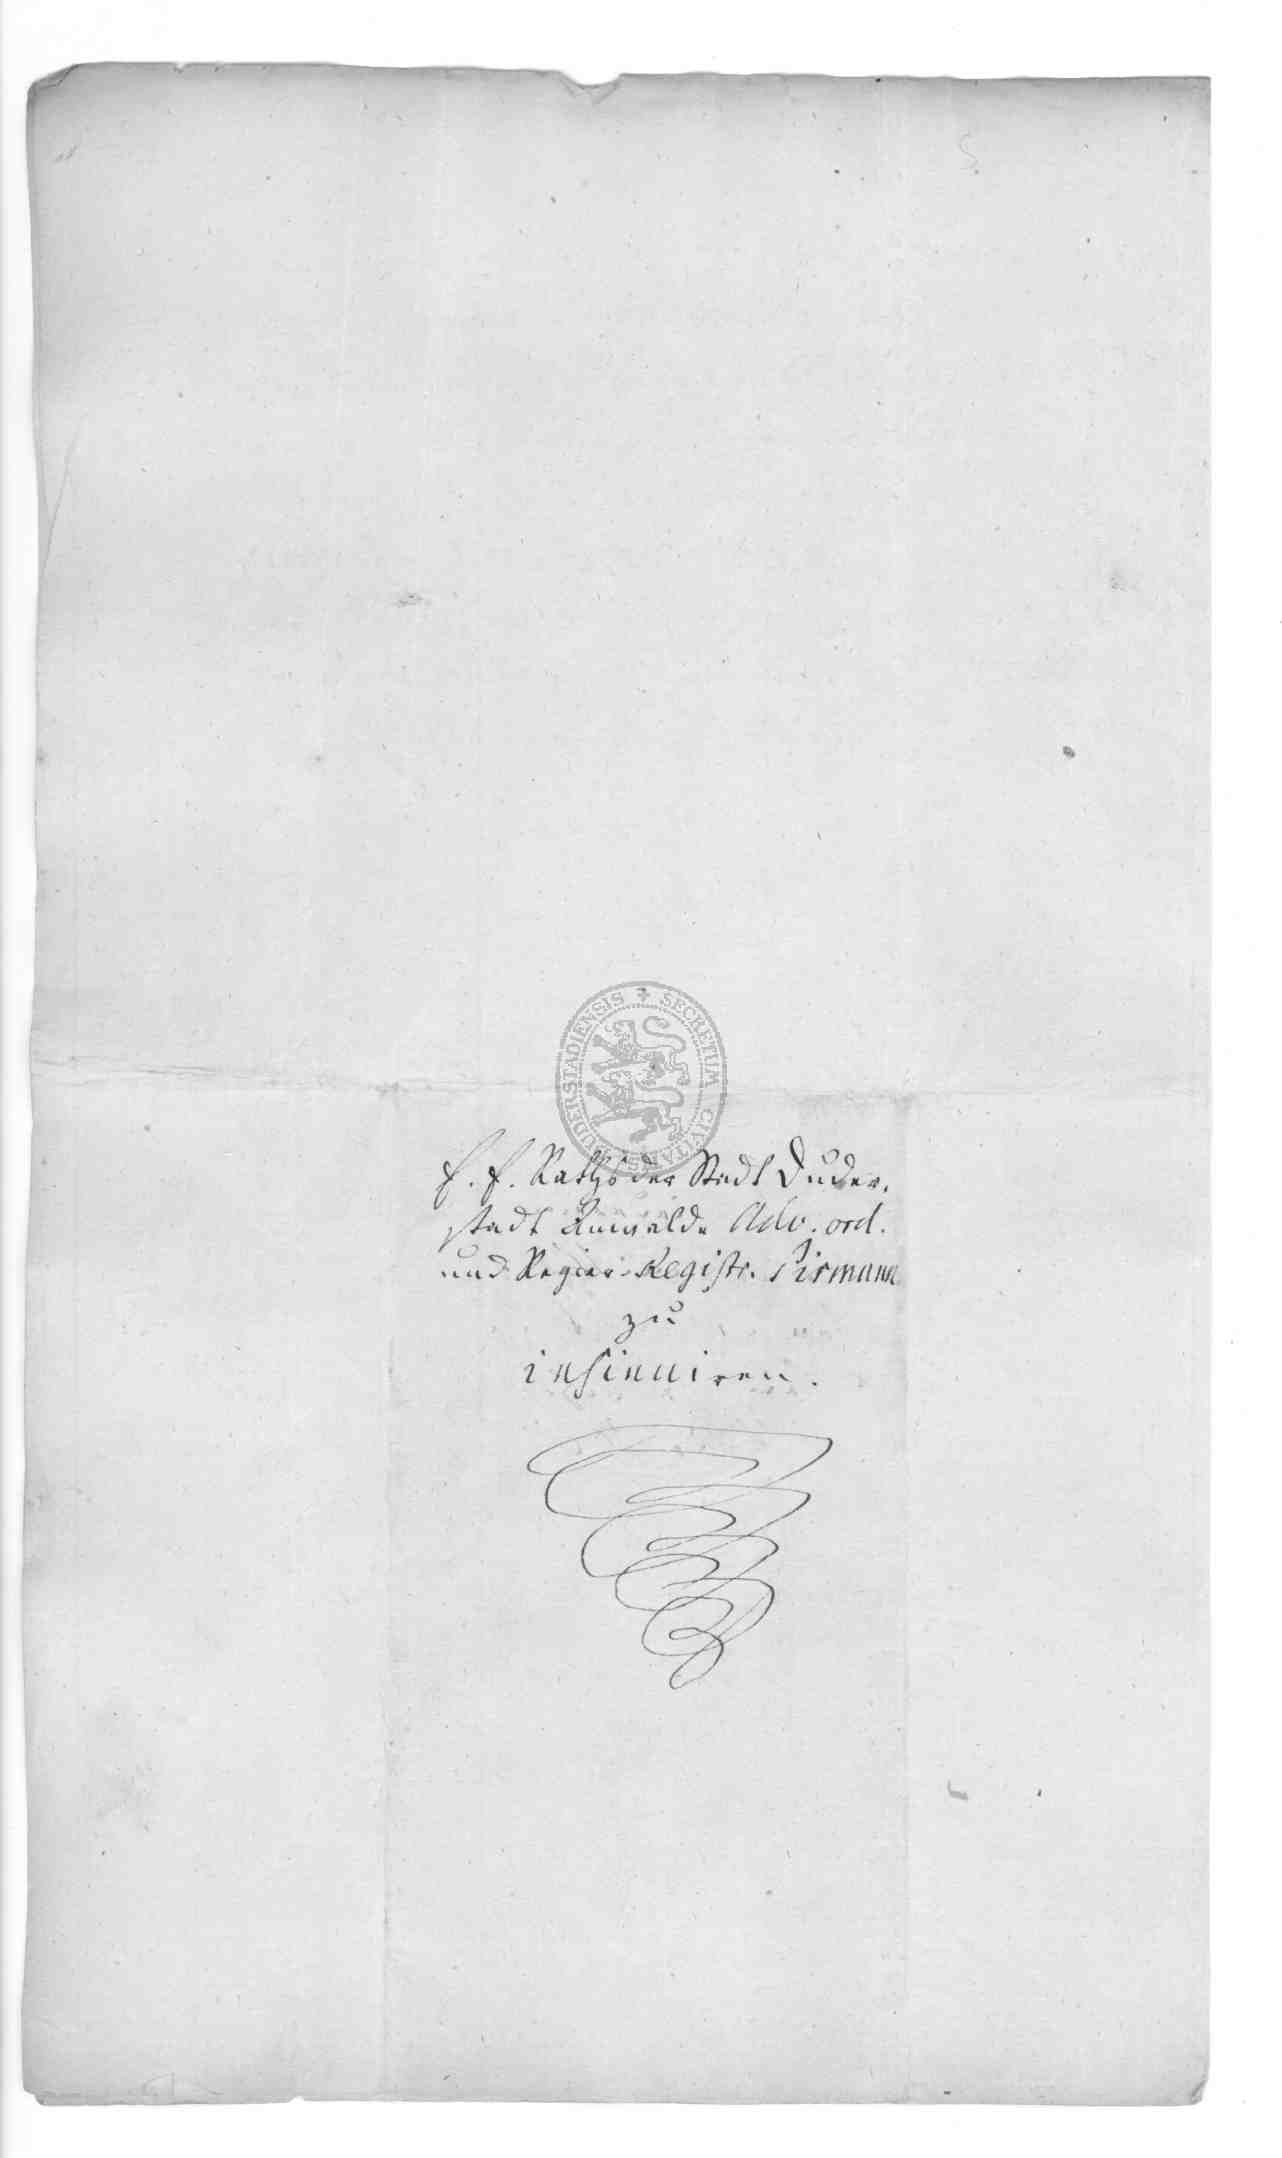 SECRETUM CIVITATIS DUDERSTADIENSIS
E. E. Raths der Stadt Duder-
stadt Anwalde Adv. ord.
und Regier. Registr. Pirmann
zu
insinuiren.